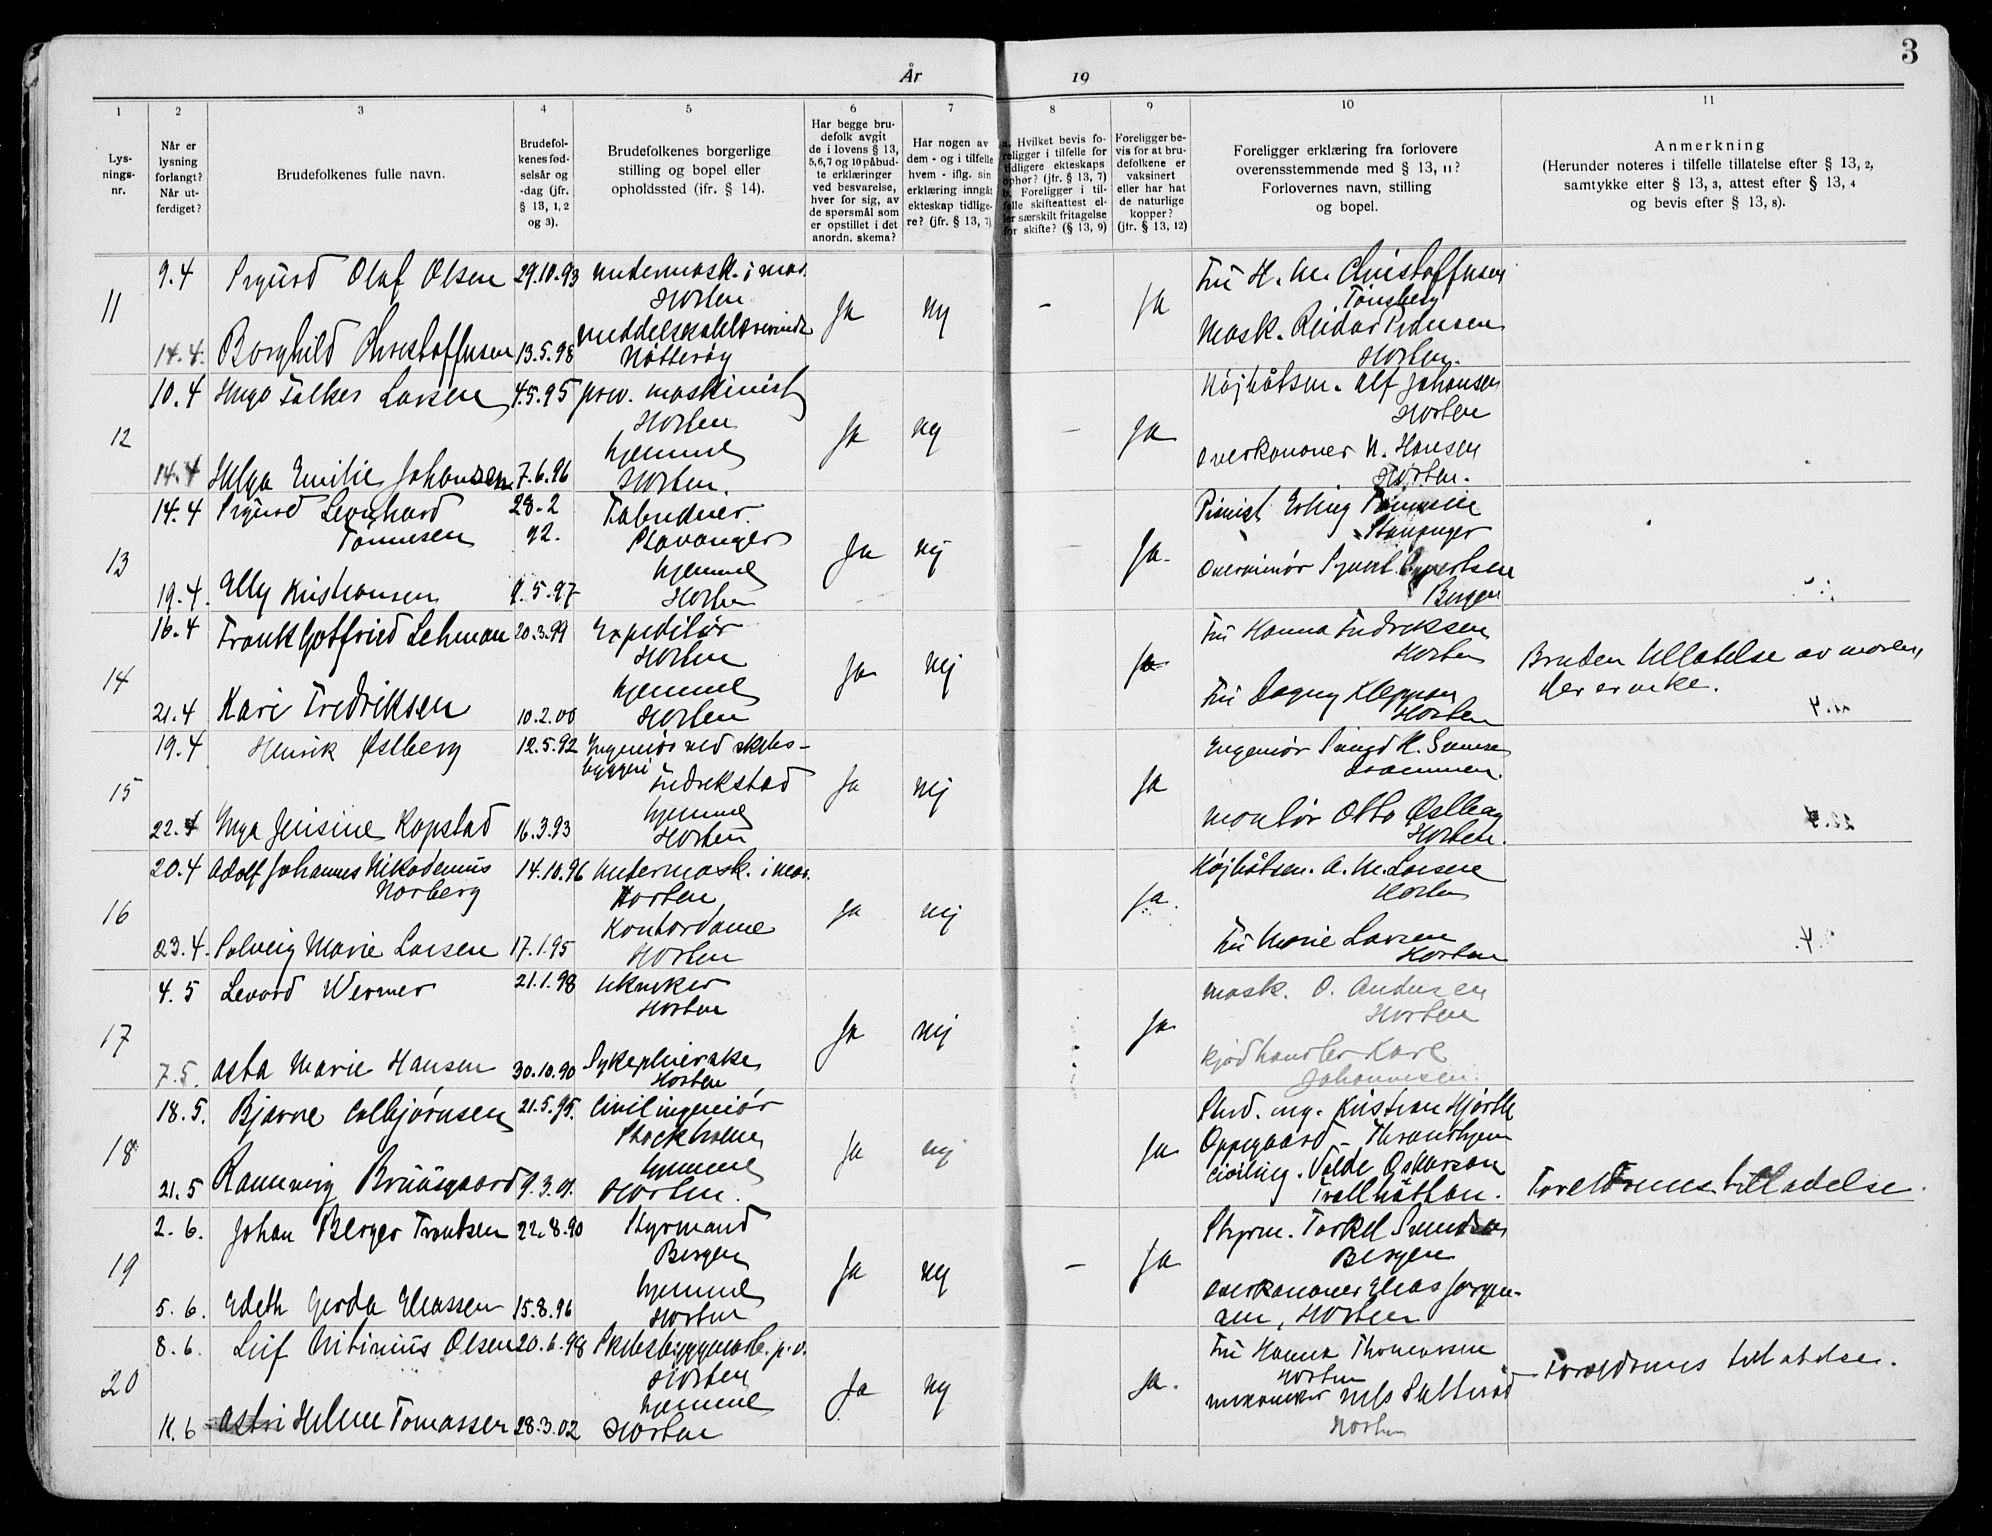 År 19
3
1 2 3 4 5 6 7 8 9 10 11
Lys-
nings-
nr.
Når er
lysning
forlangt?
Når ut-
ferdiget?
Brudefolkenes fulle navn.
Brudefol-
kenes fød-
selsår og
-dag (jfr.
§ 13, 1, 2
og 3).
Brudefolkenes borgerlige
stilling og bopel eller
opholdssted (jfr. § 14).
Har begge bru-
defolk avgit
de i lovens § 13,
5,6,7 og 10 påbud-
te erklæringer
ved besvarelse,
hver for sig, av
de spørsmål som
er opstillet i det
anordn. skema?
Har nogen av
dem - og i tilfelle
hvem - iflg. sin
erklæring inngåt
ekteskap tidlige-
re? (jfr. § 13, 7)
a. Hvilket bevis fo-
religger i tilfelle for
tidligere ekteskaps
ophør? (jfr. § 13, 7)
b. Foreligger i til-
felle skifteattest el-
ler særskilt fritagelse
for skifte? (§ 13, 9)
Foreligger be-
vis for at bru-
defolkene er
vaksinert
eller har hat
de naturlige
kopper?
(jfr. § 13, 12)
Foreligger erklæring fra forlovere
overensstemmende med § 13, 11?
Forlovernes navn, stilling
og bopel.
Anmerkning
(Herunder noteres i tilfelle tillatelse efter § 13, 2,
samtykke efter § 13, 3, attest efter § 13, 4
og bevis efter § 13, 8).
11
9.4 Sigurd Olaf Olsen 29.10.93 Undermask. i mar.
Horten
Ja Nej - Ja
Fru H. M. Christoffersen
Tønsberg
14.4. Borghild Christoffersen 13.5.98
Nøtterøy
Mask. Reidar Pedersen
Horten.
12
10.4 Hugo Falker Larsen 4.5.95 prov. maskinist
Horten
Ja Nej - Ja
Højbåtsm. Alf Johansen
Horten
14.4 Helga Emilie Johansen 7.6.96 hjemme
Horten.
Overkanoner N. Hansen
Horten.
13
14.4 Sigurd Leonhard
Tønnesen 28.2
92.
Stavanger
Ja Nej - Ja.
Pianist Erling Tønnesen
Stavanger
19.4. Elly Kristiansen 9.5.97 hjemme
Horten
Bergen
14
16.4 Frank Gotfried Lehman 20.3.99 Expeditør
Horten
Ja Nej Ja
Fru Hanna Fredriksen
Horten
21.4 Kari Fredriksen 10.2.00 hjemme
Horten
Fru Dagny
Horten
Bruden tillatelse av moren,
der er enke.
15
19.4 Henrik Østberg 12.5.92 Ingeniør ved skibs-
byggeri
Fredrikstad
Ja Nej Ja
Ingeniør
Drammen.
22.4 Inga Jensine Kopstad 16.3.93 hjemme
Horten
Montør Otto Østberg
Horten.
16
20.4 Adolf Johannes Nikodemus
Norberg 14.10.96 Undermask. i mar.
Horten
Ja Nej Ja.
Højbåtsm. A. M. Larsen
Horten
23.4. Solveig Marie Larsen 17.1.95 Kontordame
Horten
Fru Marie Larsen
Horten
17
4.5 Levard Werner 21.1.98
Horten
Ja Nej Ja
Mask. O. Andersen
Horten
7.5. Asta Marie Hansen 30.10.90 Sykepleierske
Horten
Kjødhandler Karl
Johannesen.
18
18.5. Bjarne Colbjørnsen 21.5.95. Civilingeniør
Stockholm
Ja Nej Ja
Stud. ing. Kristian Hjorth
Oppegaard - Throndhjem
21.5 Rannveig Bruusgaard 9.3.01. hjemme
Horten.
Civiling. Valde Oskarson
Trollhättan.
Foreldrenes tilladelse.
19
2.6. Johan Berger Trondsen 22.8.90 Styrmand
Bergen
Ja Nej - Ja
Styrm. Torkel Svendsen
Bergen
5.6. Edith Gerda Eliassen 15.8.96 hjemme
Horten
Overkanoner Elias Jørgen-
sen, Horten
20
8.6. Leif Nitinius Olsen 20.6.98
Horten
Ja Nej Ja.
Fru Hanna Thomassen
Horten
11.6 Astri Helene Tomassen 28.3.02 hjemme
Horten
Mekaniker Nils
Horten
Foreldrenes tillatelse.